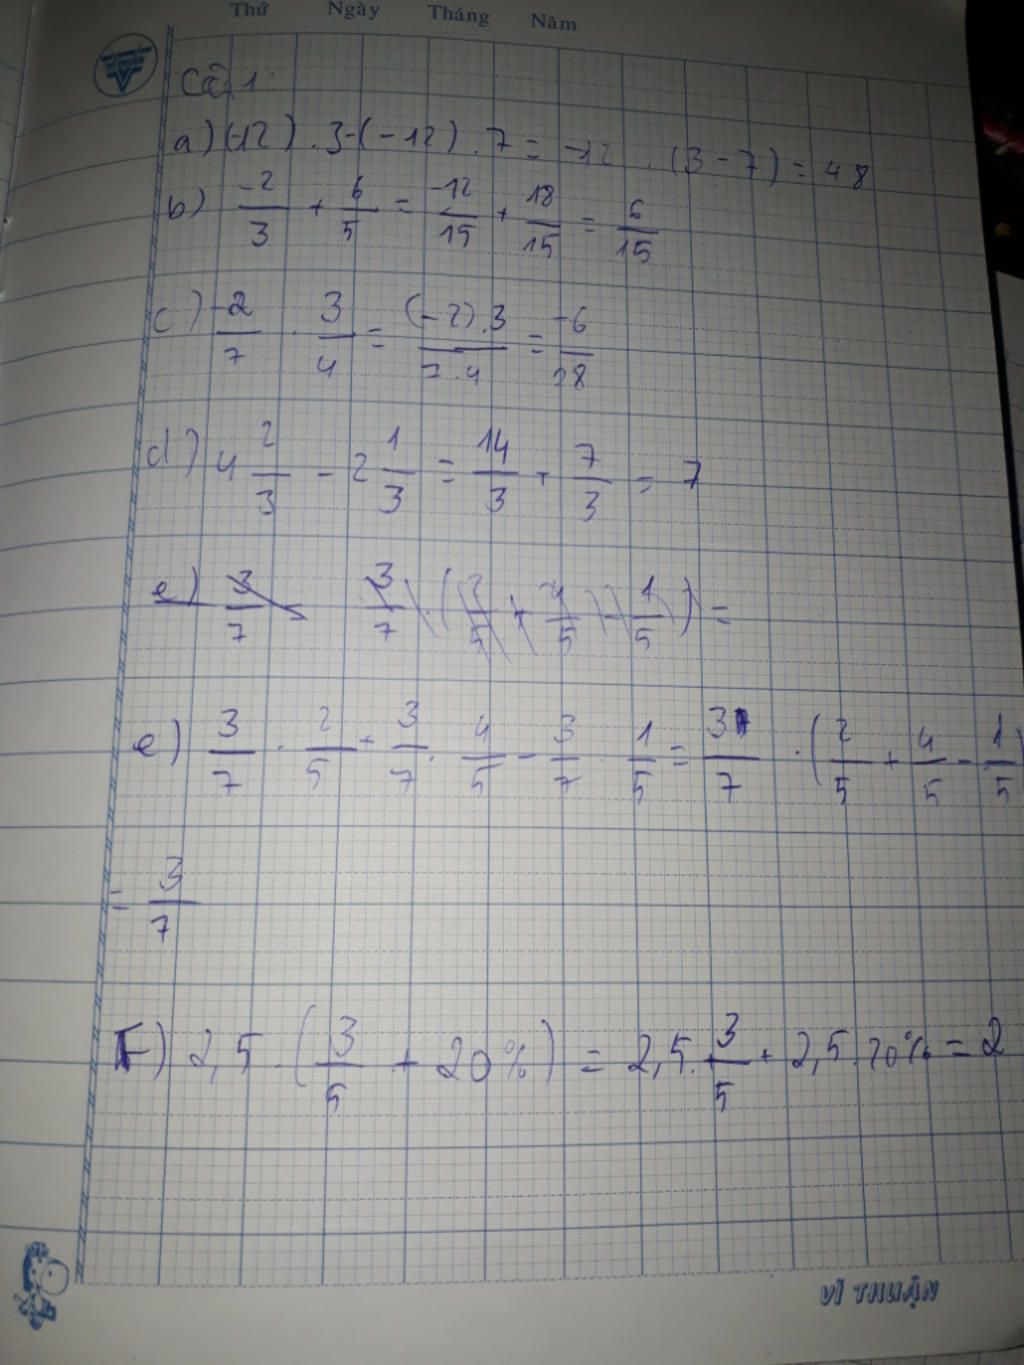 Thứ Ngày Tháng Năm
Câu 1
a) (-12) . 3 - (-12) . 7 = -12 . (3 - 7) = 48
b) -2/3 + 6/5 = -12/15 + 18/15 = 6/15
c) -2/7 . 3/4 = (-2).3/7.4 = -6/28
d) 4 2/3 - 2 1/3 = 14/3 + 7/3 = 7
e) 3/7 3/7 . (2/5 + 4/5 - 1/5) =
e) 3/7 . 2/5 + 3/7 . 4/5 - 3/7 . 1/5 = 3/7 . (2/5 + 4/5 - 1/5)
= 3/7
F) 2,5 . (3/5 + 20%) = 2,5 . 3/5 + 2,5 . 20% = 2
VĨ THUẬN